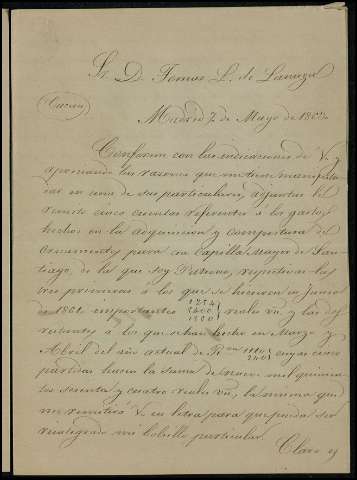 Sr. D. Tomas L. de Larraga
Madrid 7 de Mayo de 1862
Conforme con las indicaciones de V. y
apreciando las razones que me tiene manifesta-
das en una de sus particulares, adjuntas le
remito cinco cuentas referentes á los gastos
hechos en la adquisicion y compostura de
ornamentos para mi Capilla mayor de San-
tiago, de la que soy Patrono, respectivas las
tres primeras á los que se hicieron en Junio
de 1861 importantes reales vn. y las dos
1254
2400
1500
restantes á los que se han hecho en Marzo y
Abril del año actual de cuyas cinco
partidas hacen la suma de nueve mil quinien-
tos sesenta y cuatro reales vn., la misma que
me remitirá V. en letra para que pueda ser
reintegrado mi bolsillo particular.
Claro es